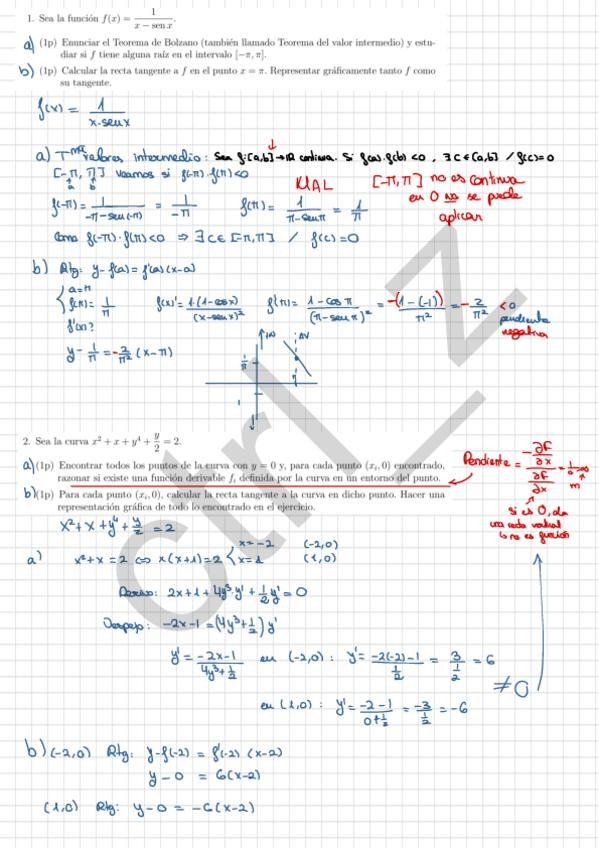 1. Sea la función f(x) = 1/(x − sen x).
a) (1p) Enunciar el Teorema de Bolzano (también llamado Teorema del valor intermedio) y estu-
diar si f tiene alguna raíz en el intervalo [−π, π].
b) (1p) Calcular la recta tangente a f en el punto x = π. Representar gráficamente tanto f como
su tangente.
f(x) = 1/(x-senx)
a) Tma valores intermedio: Sea f:[a,b]→ℝ continua. Si f(a)·f(b) <0, ∃ c ∈ [a,b] / f(c)=0
[-π, π] veamos si f(-π)·f(π)<0
a b
MAL
[-π,π] no es continua
en 0 no se puede
aplicar
f(-π) = 1/(-π-sen(-π)) = 1/-π f(π) = 1/(π-senπ) = 1/π
Como f(-π)·f(π)<0 ⇒ ∃ c ∈ [-π,π] / f(c)=0
b) Rtg: y-f(a)=f'(a)(x-a)
a=π
f(π)=1/π
f'(π)?
f(x)'= 1·(1-cosx)/(x-senx)² f'(π)= (1-cos π)/(π-senπ)² = -(1-(-1))/π² = -2/π² <0
pendiente
negativa
y-1/π = -2/π² (x-π)
2. Sea la curva x² + x + y⁴ + y/2 = 2.
a) (1p) Encontrar todos los puntos de la curva con y = 0 y, para cada punto (xᵢ, 0) encontrado,
razonar si existe una función derivable fᵢ definida por la curva en un entorno del punto.
b) (1p) Para cada punto (xᵢ, 0), calcular la recta tangente a la curva en dicho punto. Hacer una
representación gráfica de todo lo encontrado en el ejercicio.
Pendiente =
si es 0, da
una recta vertical
x²+x+y⁴+y/2=2
a) x²+x=2 ⇔ x(x+1)=2 x=-2 (-2,0)
x=1 (1,0)
Derivo: 2x+1+4y³·y'+1/2 y'=0
Despejo: -2x-1=(4y³+1/2)y'
y'= (-2x-1)/(4y³+1/2) en (-2,0): y'= (-2(-2)-1)/(1/2) = 3/(1/2) = 6
≠0
en (1,0): y'= (-2-1)/(0+1/2) = -3/(1/2) = -6
b) (-2,0) Rtg: y-f(-2) = f'(-2) (x-2)
y-0 = 6(x-2)
(1,0) Rtg: y-0 = -6(x-2)
ctrl_z